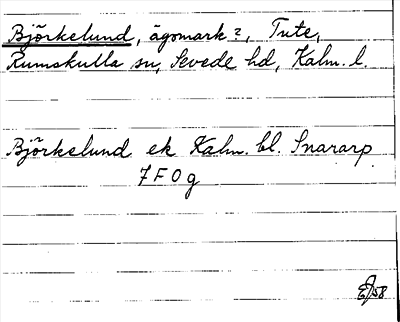 Björkelund, ägomark?, Tute,
Rumskulla sn, Sevede hd, Kalm. l.
Björkelund ek Kalm. bl. Snararp
7 F 0 g